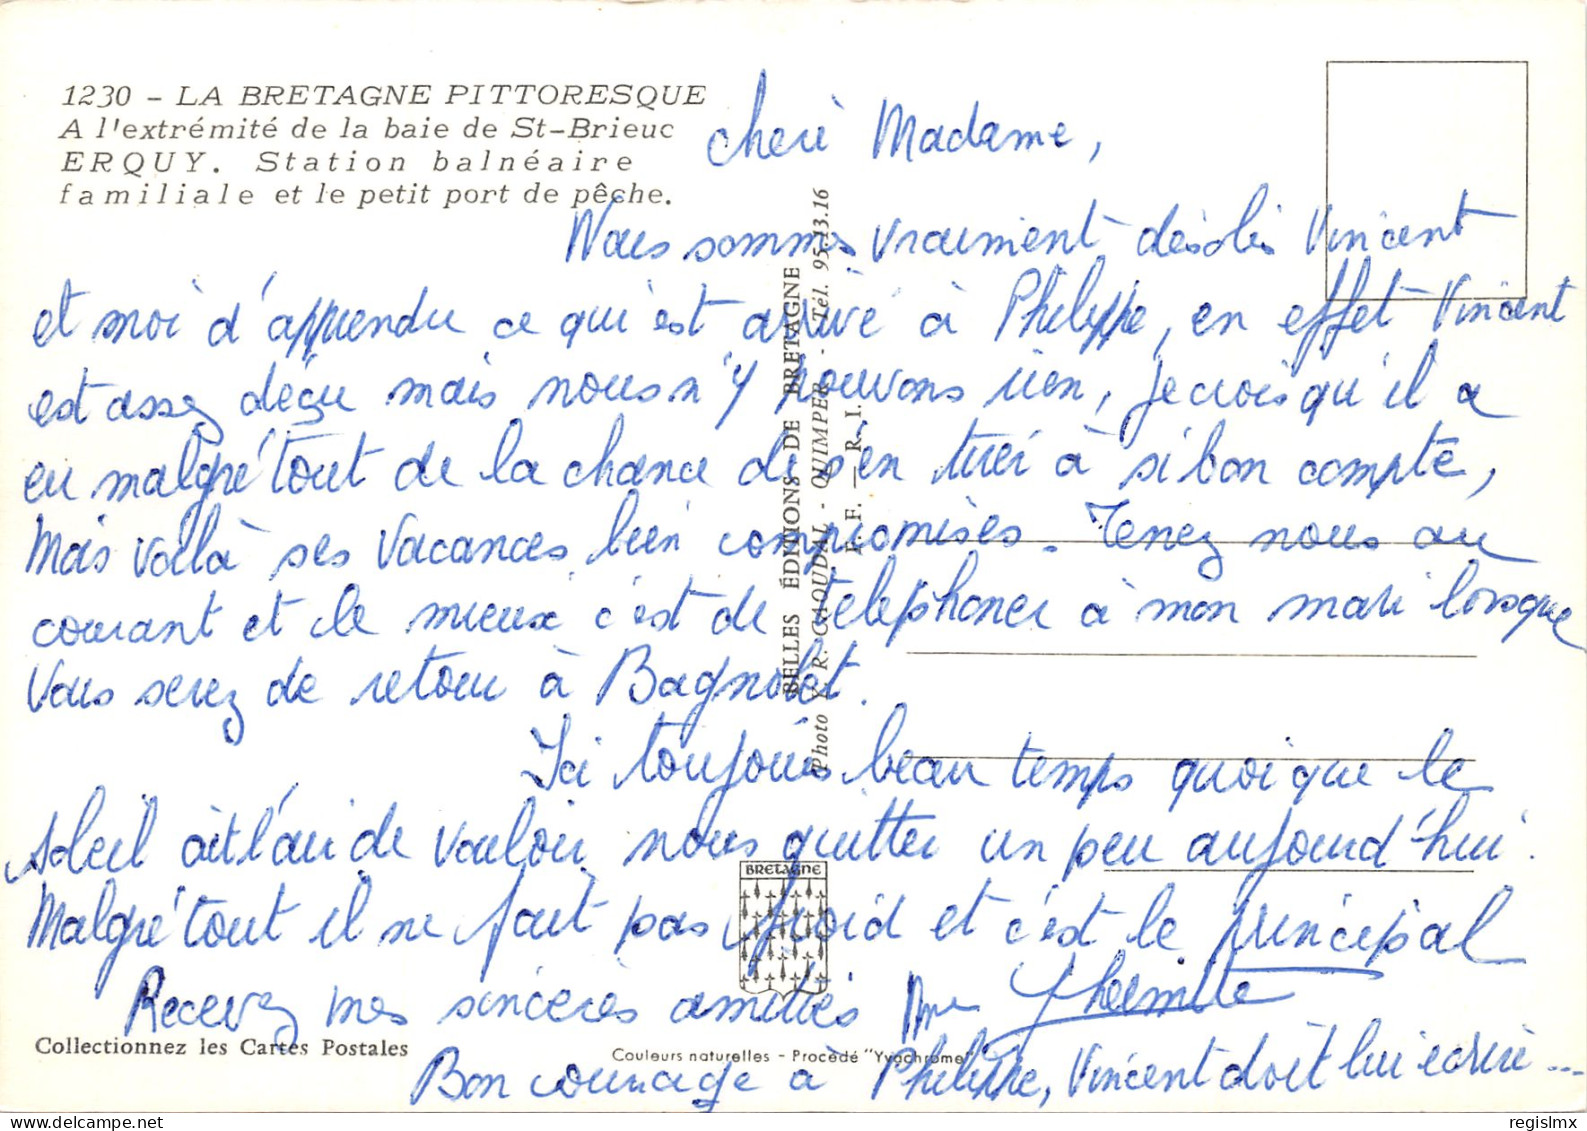 1230 - LA BRETAGNE PITTORESQUE
A l'extrémité de la baie de St-Brieuc
ERQUY. Station balnéaire
familiale et le petit port de pêche.
cheré Madame,
Nous sommes vraiment désolés Vincent
et moi d'apprendre ce qui est arrivé à Philippe, en effet Vincent
est assez déçu mais nous n'y pouvons rien, Je crois qu'il a
eu malgré tout de la chance de s'en tirer à si bon compte,
Mais voilà ses vacances bien compromises. Tenez nous au
courant et le mieux c'est de téléphoner à mon mari lorsque
vous serez de retour à Bagnolet.
Ici toujours beau temps quoique le
soleil ait l'air de vouloir nous quitter un peu aujourd'hui.
Malgré tout il ne fait pas froid et c'est le principal
Recevez mes sincères amitiés Mme Lhermitte
Bon courage à Philippe, Vincent doit lui écrire ...
BELLES ÉDITIONS DE BRETAGNE
Photo Y. R. CAOUDAL - QUIMPER - Tél. 95.13.16
R. F. — R. I.
BRETAGNE
Collectionnez les Cartes Postales
Couleurs naturelles - Procédé "Yvochrome"
regislmx